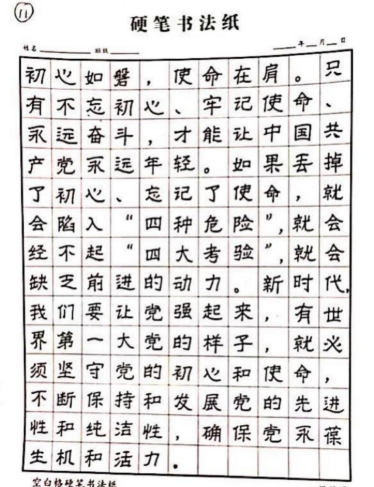 11
硬笔书法纸
姓名 班级 年 月 日
初心如磐，使命在肩。只
有不忘初心、牢记使命、
永远奋斗，才能让中国共
产党永远年轻。如果丢掉
了初心、忘记了使命，就
会陷入“四种危险”，就会
经不起“四大考验”，就会
缺乏前进的动力。新时代，
我们要让党强起来，有世
界第一大党的样子，就必
须坚守党的初心和使命，
不断保持和发展党的先进
性和纯洁性，确保党永葆
生机和活力。
空白格硬笔书法纸